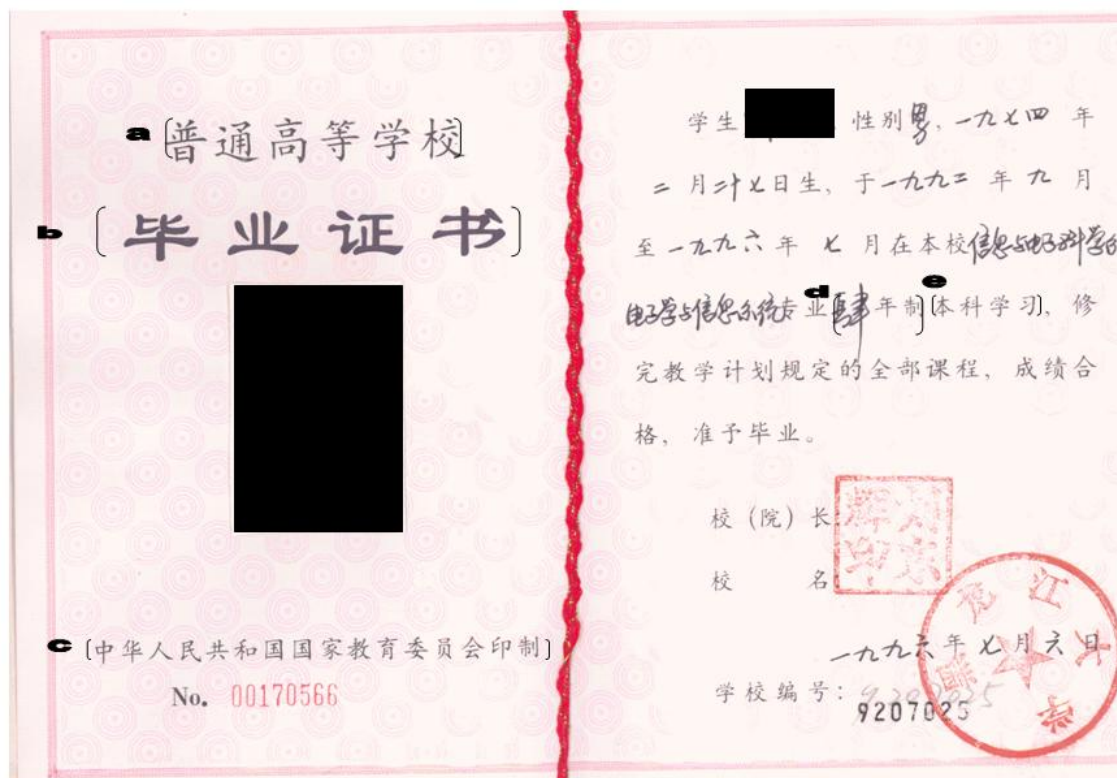 a [普通高等学校]
b [毕业证书]
c [中华人民共和国国家教育委员会印制]
No. 00170566
学生 性别男，一九七四年
二月二十七日生，于一九九二年九月
至一九九六年七月在本校信息与电子科学
电子学与信息系统专业 d [肆年制] e [本科学习]，修
完教学计划规定的全部课程，成绩合
格，准予毕业。
校（院）长
校 名
黑龙江大学
一九九六年七月六日
学校编号：9207025
9207025